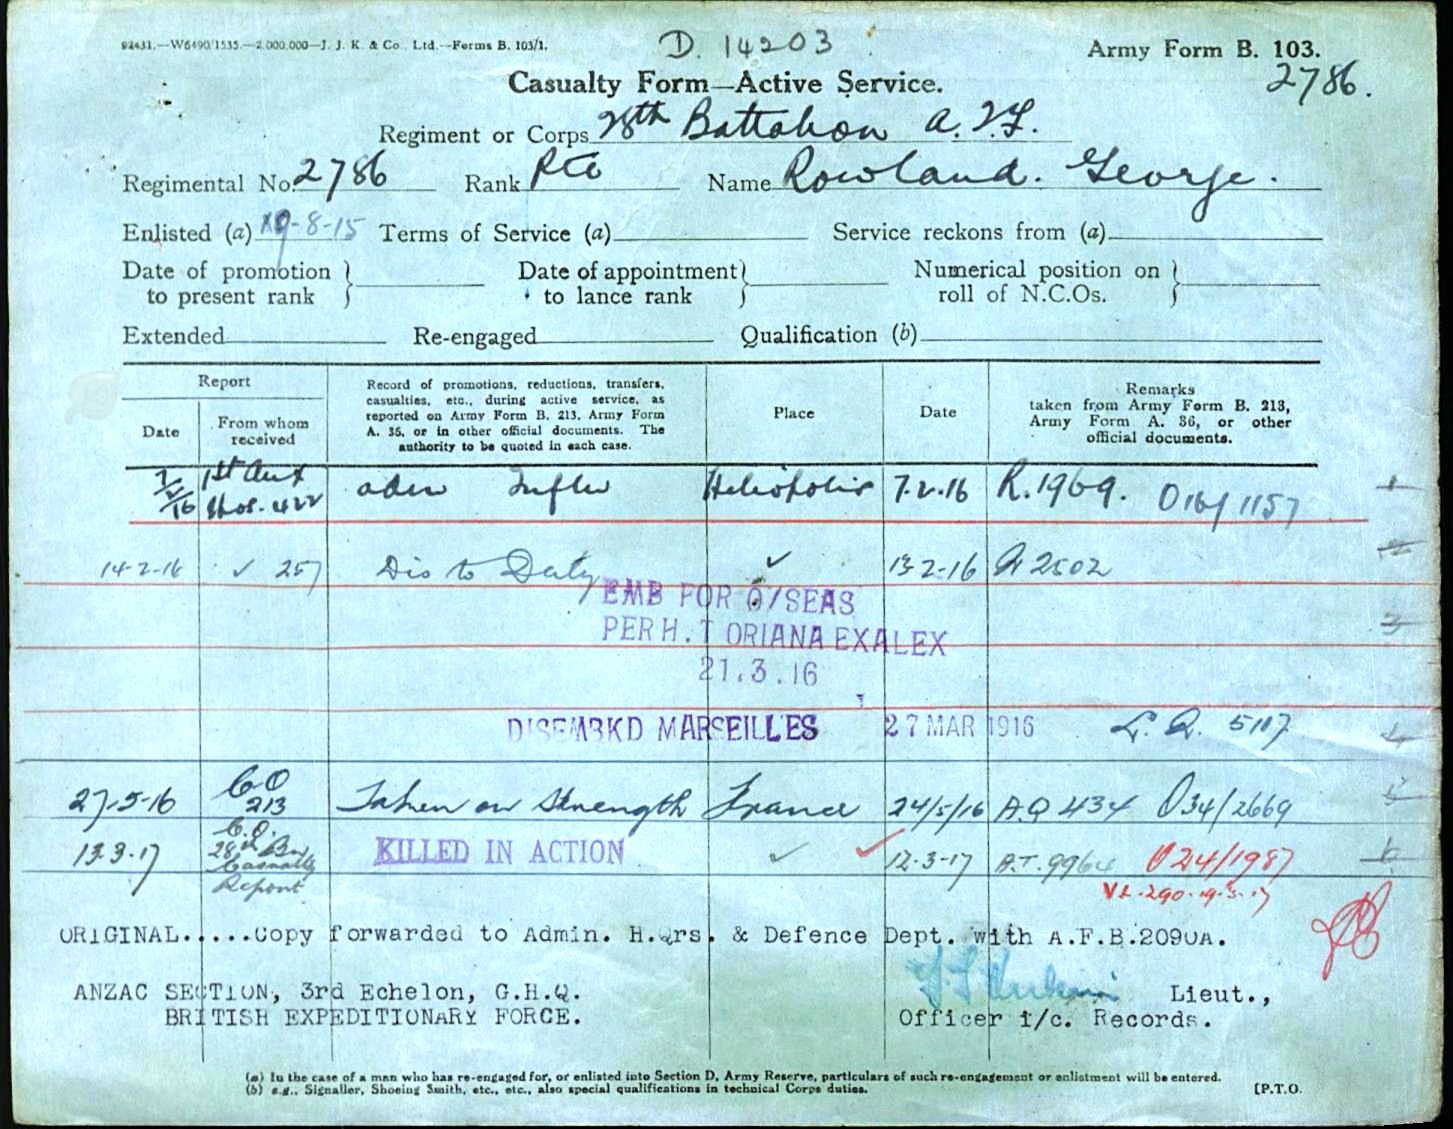 92431.—W6490/1535.—2,000,000—J. J. K. & Co., Ltd.—Forms B. 103/1.
D. 14203
Army Form B. 103.
2786.
Casualty Form—Active Service.
Regiment or Corps 28th Battalion A.I.F.
Regimental No. 2786 Rank Pte Name Rowland. George.
Enlisted (a) 19-8-15 Terms of Service (a) Service reckons from (a)
Date of promotion to present rank } Date of appointment to lance rank } Numerical position on roll of N.C.Os. }
Extended Re-engaged Qualification (b)
Report
Date
From whom received
Record of promotions, reductions, transfers,
casualties, etc., during active service, as
reported on Army Form B. 213, Army Form
A. 36, or in other official documents. The
authority to be quoted in each case.
Place
Date
Remarks
taken from Army Form B. 213,
Army Form A. 36, or other
official documents.
7/2/16 1st Aux Hos. 422 adm Influ Heliopolis 7.2.16 R.1969. O16/1157 1
14-2-16 ✓ 257 Dis to Duty ✓ 13-2-16 A 2502 2
EMB FOR O/SEAS
PER H.T ORIANA EXALEX 3
21.3.16
DISEMBKD MARSEILLES 27 MAR 1916 5117 4
27-5-16 CO 213 Taken on Strength France 24/5/16 A.Q 434 O34/2669 5
13.3.17 C.O. 28th Bn Casualty Report KILLED IN ACTION ✓ 12-3-17 O24/1987 6
ORIGINAL.....Copy forwarded to Admin. H.Qrs. & Defence Dept. with A.F.B.2090A.
ANZAC SECTION, 3rd Echelon, G.H.Q. Lieut.,
BRITISH EXPEDITIONARY FORCE. Officer i/c. Records.
(a) In the case of a man who has re-engaged for, or enlisted into Section D, Army Reserve, particulars of such re-engagement or enlistment will be entered.
(b) e.g., Signaller, Shoeing Smith, etc., etc., also special qualifications in technical Corps duties. [P.T.O.